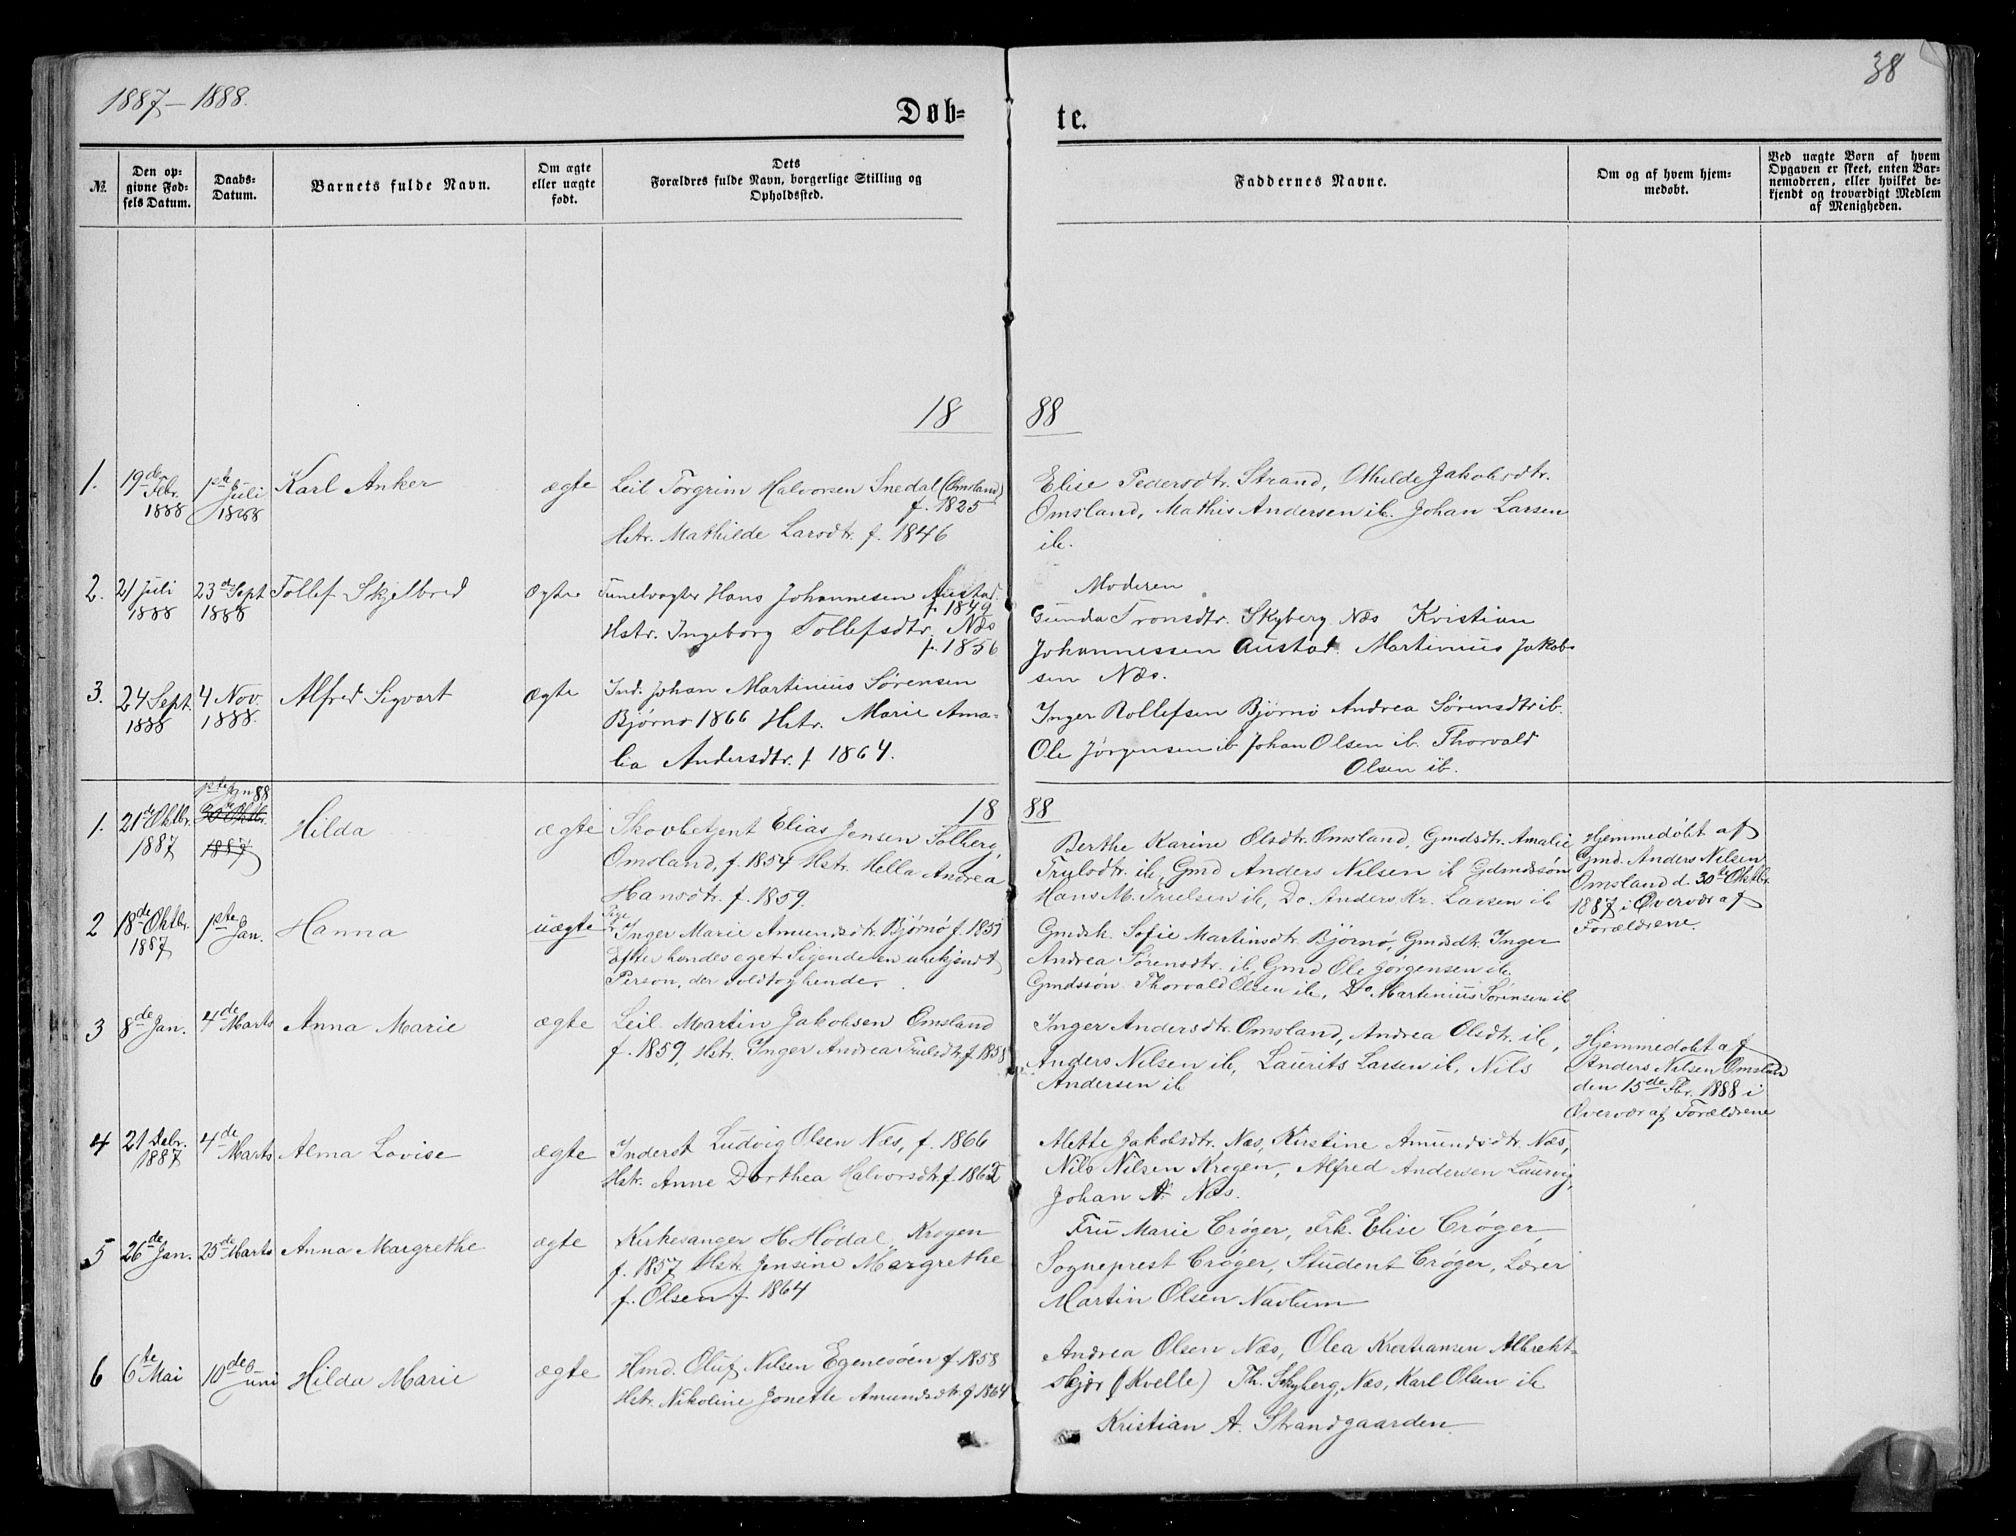 1887–1888.
38
Døb=
te.
№.
Den op-
givne Fød-
sels Datum.
Daabs-
Datum.
Barnets fulde Navn.
Om ægte
eller uægte
født.
Dets
Forældres fulde Navn, borgerlige Stilling og
Opholdssted.
Faddernes Navne.
Om og af hvem hjem-
medøbt.
Ved uægte Børn af hvem
Opgaven er skeet, enten Bar-
nemoderen, eller hvilket be-
kjendt og troværdigt Medlem
af Menigheden.
18 88
1. 19de Febr. 1888
1ste Juli 1888
Karl Anker
ægte
Leil Torgrim Halvorsen Snedal (Omsland)
f. 1825
Hstr. Mathilde Larsdtr. f. 1846
Elise Pedersdtr. Strand, Othilde Jakobsdtr.
Omsland, Mathis Andersen ib. Johan Larsen
ib.
2. 21 Juli 1888
23de Sept 1888
Tollef Skjelbred
Ægte
Tunelvagter Hans Johannesen Austad.
f. 1849
Hstr. Ingeborg Tollefsdtr. Næs
f. 1856
Moderen
Gunda Tronsdtr. Skyberg Næs Kristian
Johannessen Austad. Martinius Jakob-
sen Næs.
3. 24 Sept. 1888
4 Nov. 1888.
Alfred Sigvart
Ægte
Ind. Johan Martinius Sørensen
Bjørnø 1866 Hstr. Marie Ama-
lia Andersdtr. f 1864.
Inger Rollefsen Bjørnø Andrea Sørensdtr ib.
Ole Jørgensen ib Johan Olsen ib. Thorvald
Olsen ib.
18 88
1. 21de Oktbr. 1887
1ste Jan 88
30te Oktbr.
1887
Hilda
ægte
Skovbetjent Elias Jensen Solberg,
Omsland, f. 1854 Hstr. Hella Andrea
Hansdtr. f. 1859.
Berthe Karine Olsdtr. Omsland, Gmdsdtr. Amalie
Trulsdtr. ib, Gmd Anders Nilsen ib Gdmdssøn
Hans M. Truelsen ib, Do Anders Kr. Larsen ib
Hjemmedøbt af
Gmd. Anders Nilsen
Omsland d. 30te Oktbr.
1887 i Overvær af
Forældrene.
2 18de Oktbr. 1887
1ste Jan.
Hanna
uægte
Pige Inger Marie Amundsdtr. Bjørnø f. 1851
Efter hendes eget Sigende en ubekjendt
Person, der voldtog hende.
Gmdsk. Sofie Martinsdtr. Bjørnø, Gmdsdtr. Inger
Andrea Sørensdtr. ib, Gmd Ole Jørgensen ib.
Gmdssøn Thorvald Olsen ib, Do Martinius Sørensen ib
3 8de Jan.
4de Marts
Anna Marie
ægte
Leil. Martin Jakobsen Omsland
f. 1859, Hstr. Inger Andrea Trulsdtr. f. 1858
Inger Andersdtr. Omsland, Andrea Olsdtr. ib,
Anders Nilsen ib, Laurits Larsen ib, Nils
Andersen ib
Hjemmedøbt af
Anders Nilsen Omsland
den 15de Fbr. 1888 i
Overvær af Forældrene
4 21 Debr. 1887
4de Marts
Alma Lovise
ægte
Inderst Ludvig Olsen Næs, f. 1866
Hstr. Anne Dorthea Halvorsdtr f. 1862
Mette Jakobsdtr. Næs, Kirstine Amundsdtr. Næs,
Nils Nilsen Krogen, Alfred Andersen Laurvig,
Johan A. Næs.
5 26de Jan.
25de Marts
Anna Margrethe
ægte
Kirkesanger H Hödal, Krogen
f. 1857 Hstr. Jensine Margrethe
f. Olsen f. 1864
Fru Marie Crøger, Frk. Elise Crøger,
Sogneprest Crøger, Student Crøger, Lærer
Martin Olsen Navlum
6 6te Mai
10de Juni
Hilda Marie
ægte
Hmd. Oluf Nilsen Egenesöen f 1858
Hstr. Nikoline Jonette Amundsdtr. f 1864
Andrea Olsen Næs, Olea Kristiansen Albrekt-
skjær (Kvelle) Th. Skyberg, Næs, Karl Olsen ib
Kristian A. Strandgaarden.